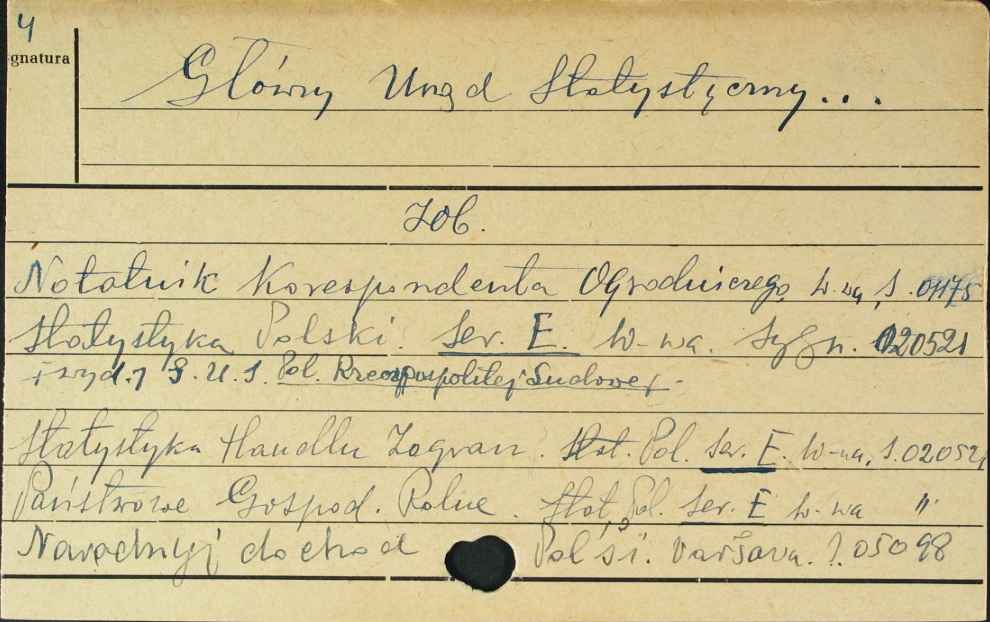 4
gnatura
Główny Urząd Statystyczny...
Zob.
Notatnik Korespondenta Ogrodniczego W-wa, S. 01175
Statystyka Polski. Ser. E. W-wa. Sygn. 020521
i wyd. G.U.S. Pol. Rzeczpospolitej Ludowej.
Statystyka Handlu Zagran. Stat. Pol. Ser. E. W-wa, S. 020521
Państwowe Gospod. Rolne. Stat. Pol. Ser. E W-wa "
Narodnyj dochod Pol'ši. Varšava. S. 05098